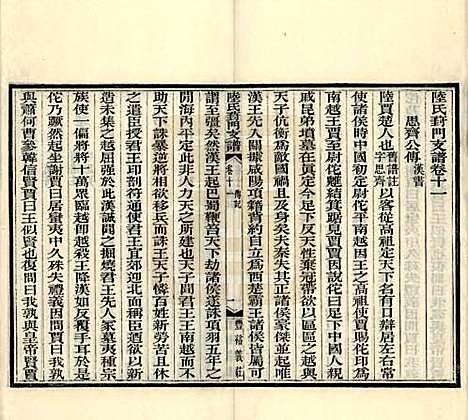 陸氏葑門支譜卷十一
思齊公傳 漢書
陸賈楚人也舊譜註字思齊以客從高祖定天下名有口辯居左右常
使諸侯時中國初定尉佗平南越因王之高祖使賈賜佗印為
南越王賈至尉佗魋結箕踞見賈賈因說佗曰足下中國人親
戚昆弟墳墓在真定今足下反天性棄冠帶欲以區區之越與
天子伉衡為敵國禍且及身矣夫秦失其正諸侯豪傑並起唯
漢王先入關據咸陽項籍背約自立為西楚霸王諸侯皆屬可
謂至彊矣然漢王起巴蜀鞭笞天下劫諸侯遂誅項羽五年之
陸氏葑門支譜
卷十一
傳記
一
豐裕義莊
間海內平定此非人力天之所建也天子聞君王王南越而不
助天下誅暴逆將相欲移兵而誅王天子憐百姓新勞苦且休
之遣臣授君王印剖符通使君王宜郊迎北面稱臣迺欲以新
造未集之越屈強於此漢誠聞之掘燒君王先人冢墓夷種宗
族使一偏將將十萬眾臨越即越殺王降漢如反覆手耳於是
佗乃蹶然起坐謝賈曰居蠻夷中久殊失禮義因問賈曰我孰
與蕭何曹參韓信賢賈曰王似賢也復問曰我孰與皇帝賢賈